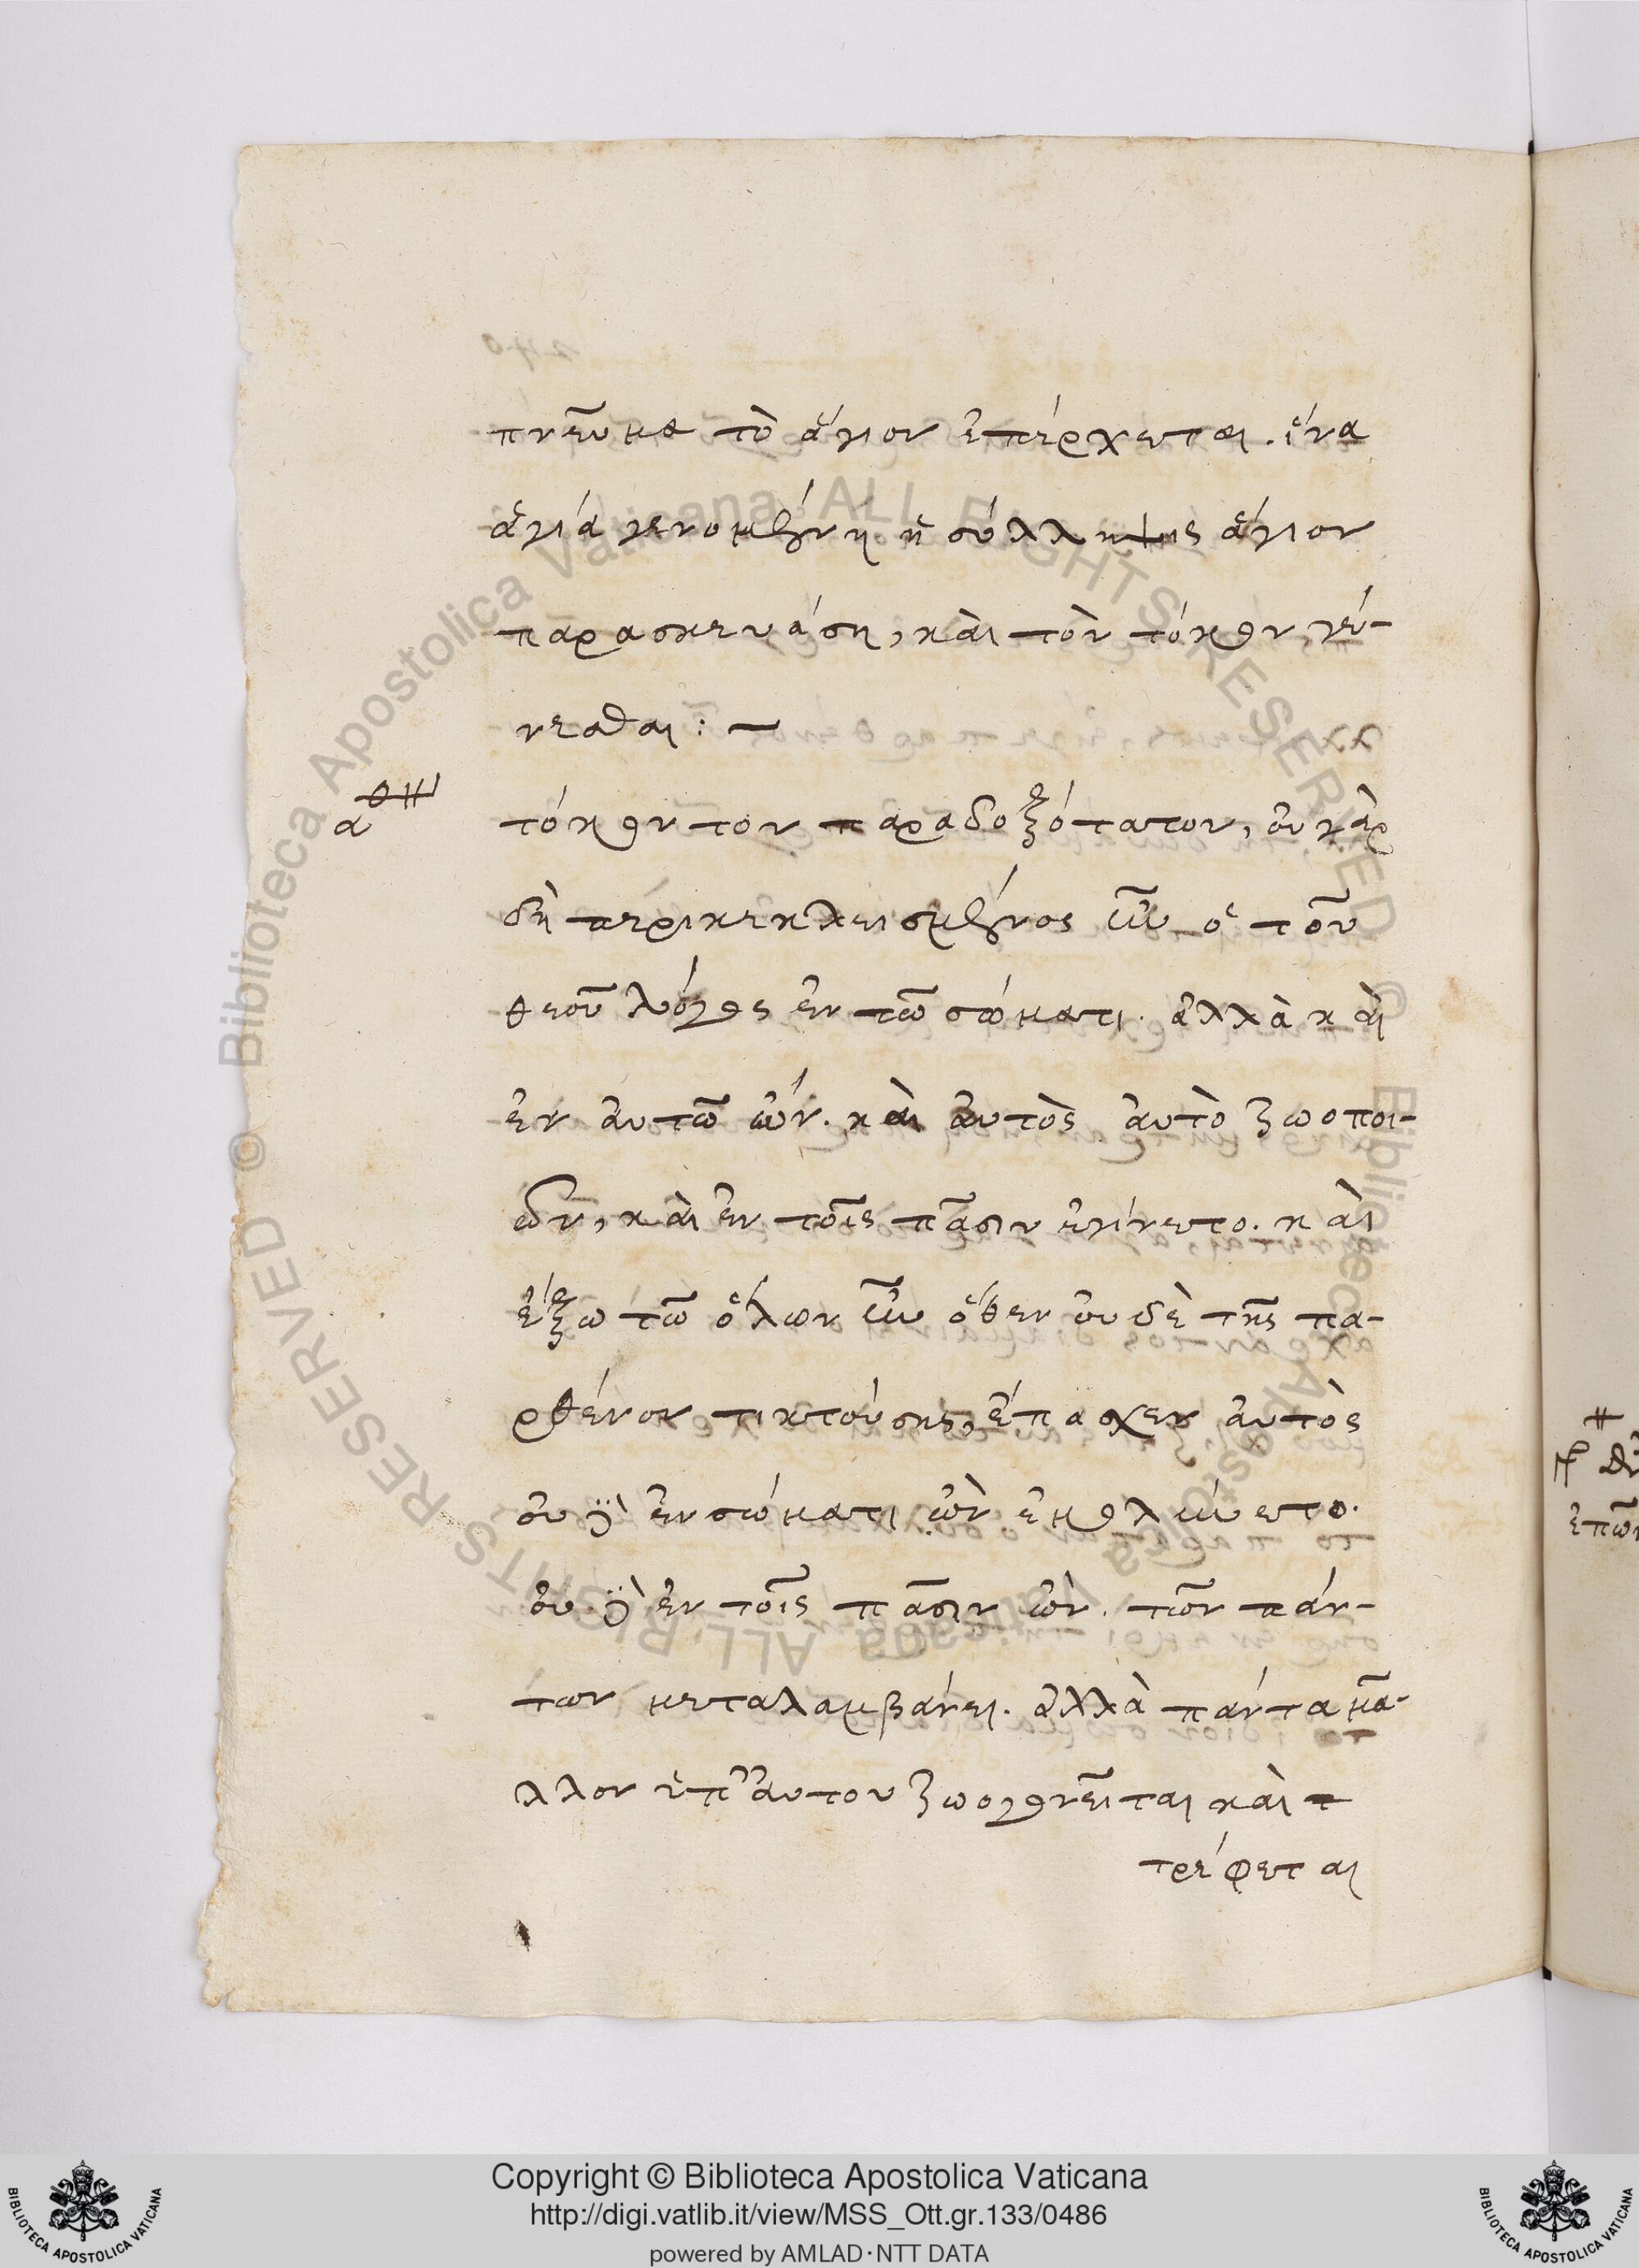 πνεῦμα τὸ ἅγιον ἐπέρχεται. ἵνα
ἁγιά γενομένη ἡ σύλληψις ἅγιον
παρασκευάση, καὶ τὸν τόκον γέ-
νεσθαι : —
τόκον τον παραδοξότατον, οὐ γὰρ
δὴ περικεκλεισμένος ἦν ὁ τοῦ
θεοῦ λόγος ἐν τῶ σώματι. ἀλλὰ καὶ
ἐν αὐτῶ ὤν. καὶ αὐτὸς αὐτὸ ζωοποι-
ῶν, καὶ ἐν τοῖς πᾶσιν ἐγίνετο. καὶ
ἔξω τῶ ὅλων ἦν ὅθεν οὐδὲ τῆς πα-
ρθένου τικτούσης, ἔπασχεν αὐτὸς
οὐδὲ ἐν σώματι ὢν ἐμολύνετο.
οὐδὲ ἐν τοῖς πᾶσιν ὢν. τῶν πάν-
των μεταλαμβάνει. ἀλλὰ πάντα μᾶ-
λλον ὑπ' αὐτου ζωογονεῖται καὶ τ
τρέφεται
ἐπων
Copyright © Biblioteca Apostolica Vaticana
http://digi.vatlib.it/view/MSS_Ott.gr.133/0486
powered by AMLAD·NTT DATA
BIBLIOTECA APOSTOLICA VATICANA
BIBLIOTECA APOSTOLICA VATICANA
© Biblioteca Apostolica Vaticana ALL RIGHTS RESERVED
© Biblioteca Apostolica Vaticana ALL RIGHTS RESERVED